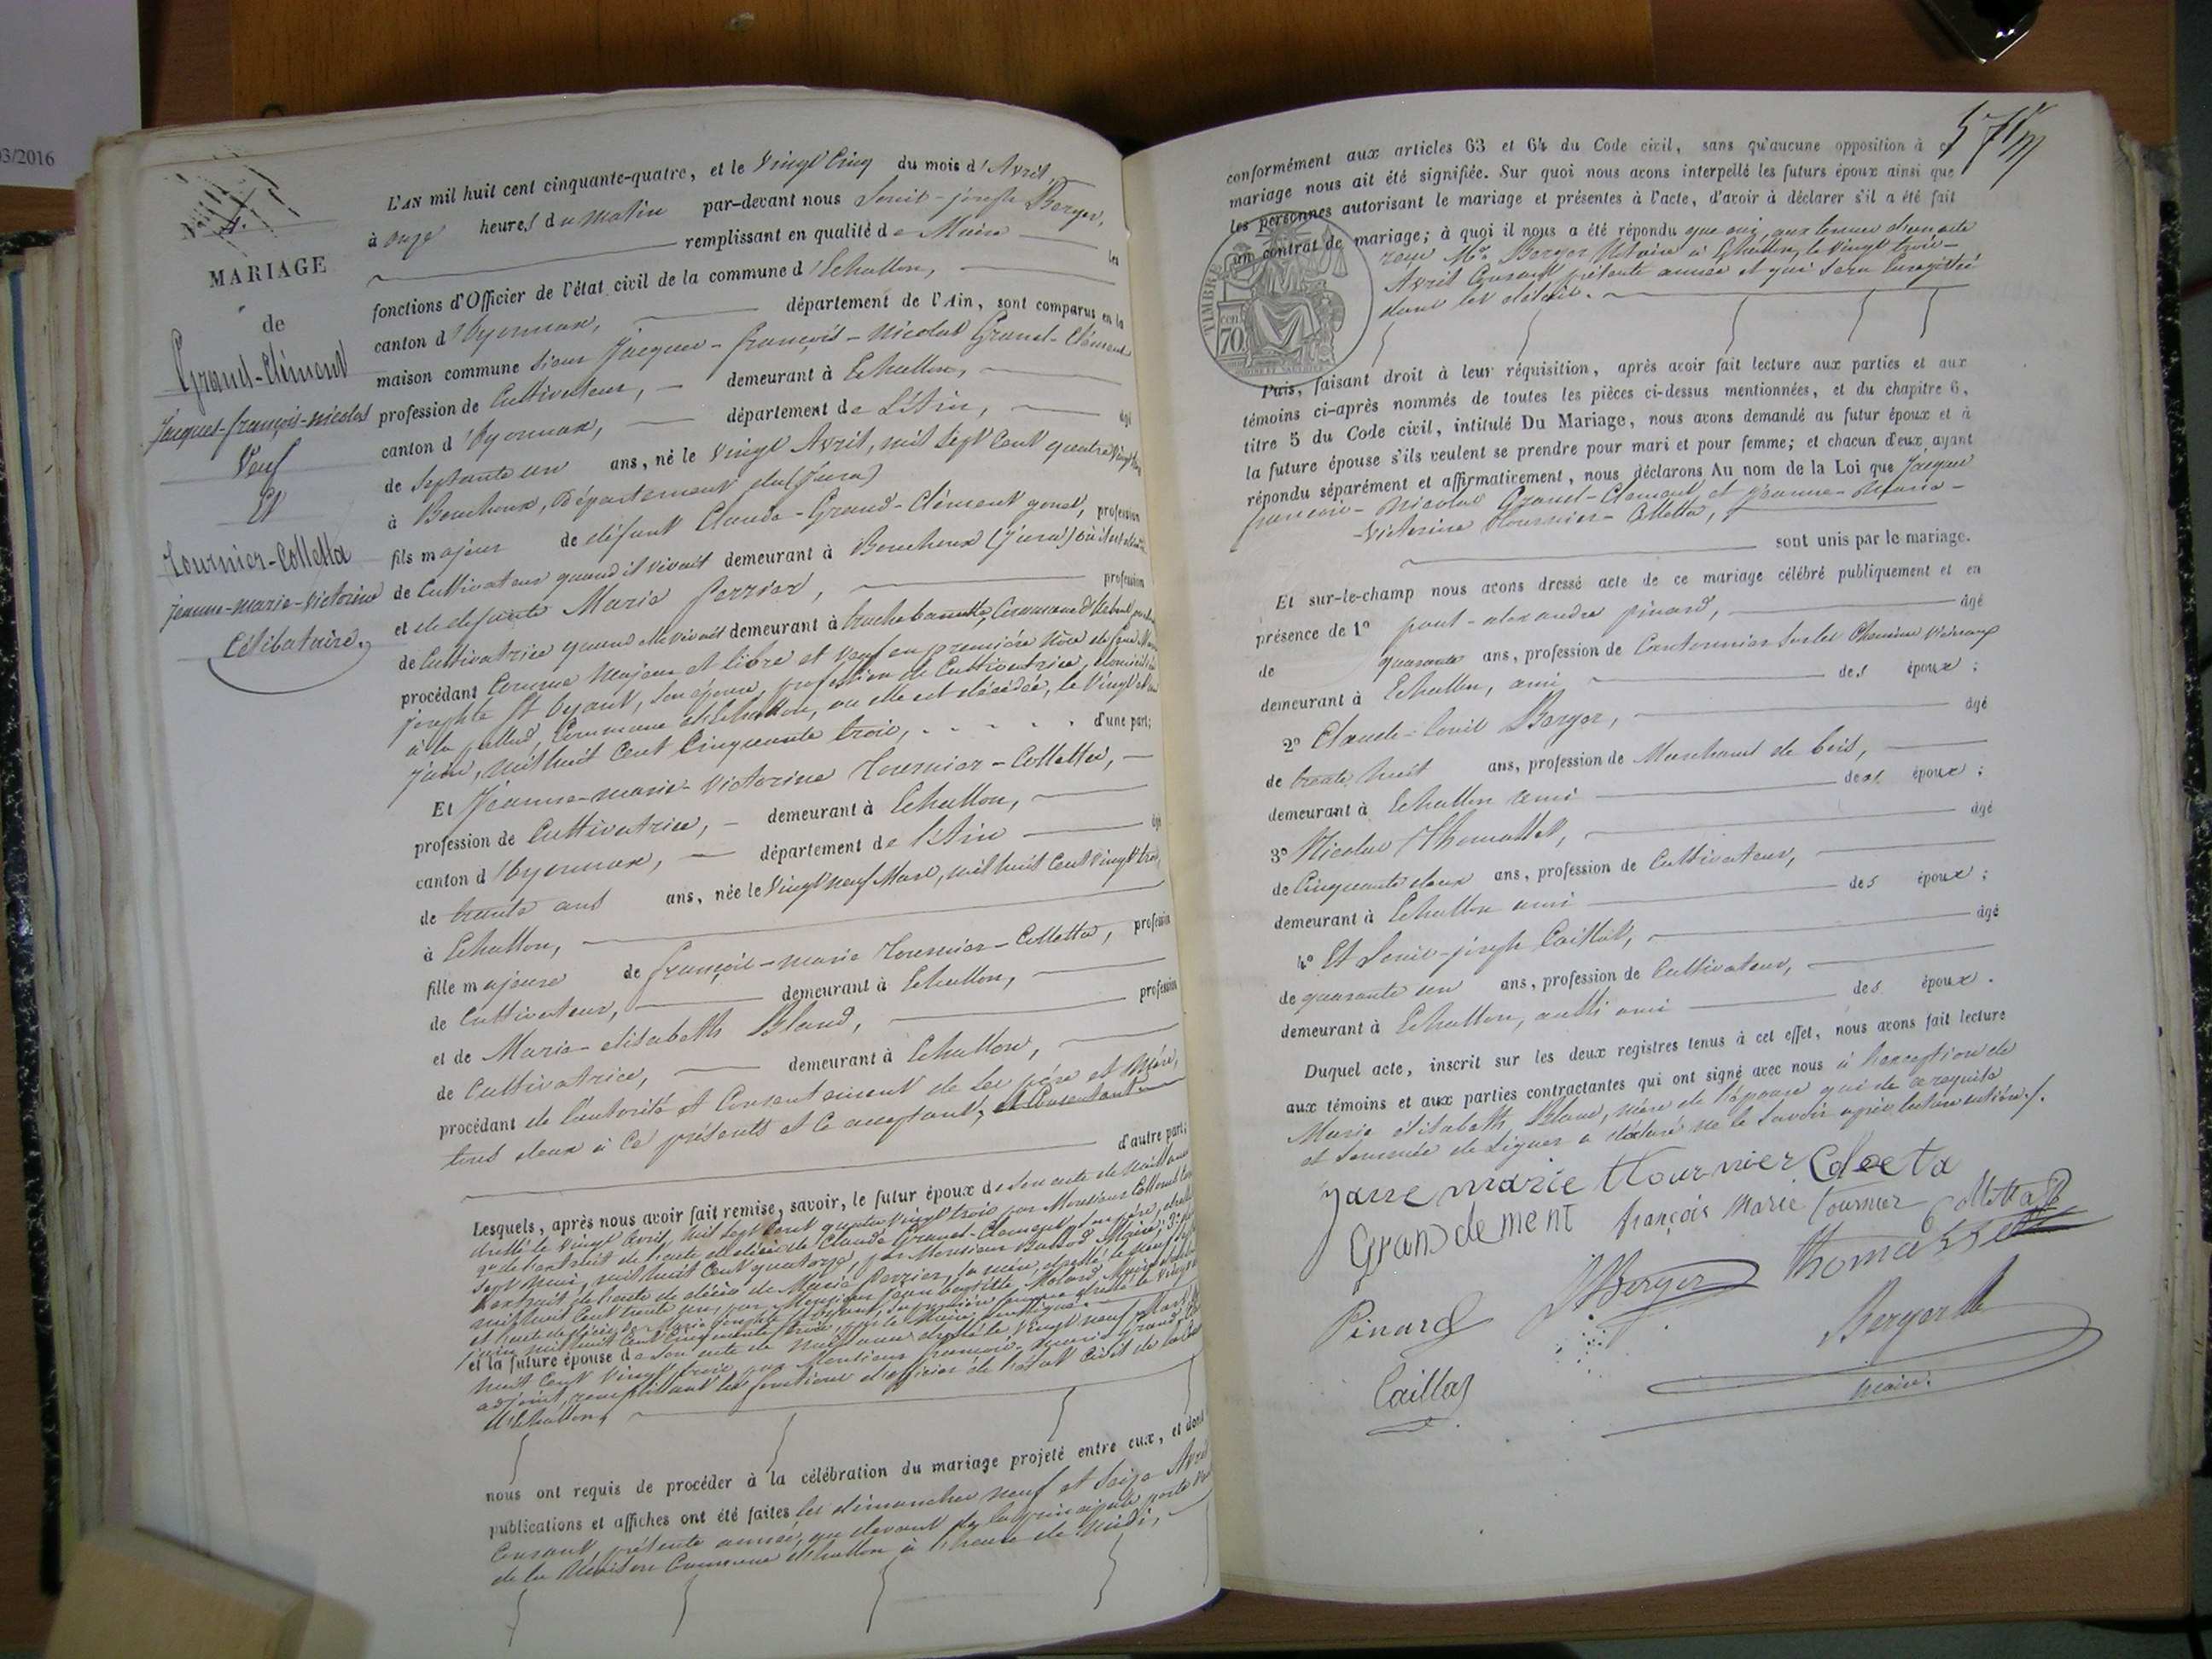 03/2016
4.
MARIAGE
de
Grand-Clément
Jacques-françois-nicolas
Veuf
Et
Tournier-Colletta
jeanne-marie-Victorine
Célibataire.
L'AN mil huit cent cinquante-quatre, et le Vingt Cinq du mois d'Avril,
à onze heures du matin par-devant nous Louis-joseph Berger,
remplissant en qualité de Maire les
fonctions d'Officier de l'état civil de la commune d'Echallon,
canton d'Oyonnax, département de l'Ain, sont comparus en la
maison commune sieur Jacques-françois-Nicolas Grand-Clément
profession de Cultivateur, demeurant à Echallon,
canton d'Oyonnax, département de L'Ain, âgé
de Septante un ans, né le Vingt Avril, mil Sept Cent quatre Vingt trois
à Bouchoux, Département du (Jura)
fils majeur de défunt Claude-Grand-Clément gonet, profession
de Cultivateur quand il vivait demeurant à Bouchoux (Jura) où il est décédé
et de défunte Marie Perrier, profession
de Cultivatrice quand elle vivait demeurant à Commune d'
procédant Comme Majeur et libre et Veuf en première Noce de feue Marie
josephte St Oyant, Son épouse, profession de Cultivatrice, domiciliée
à la pallud, Commune d'Echallon, où elle est décédée, le Vingt et un
juin, mil huit Cent Cinquante trois, d'une part;
Et Jeanne-marie-Victorine Tournier-Colletta,
profession de Cultivatrice, demeurant à Echallon,
canton d'Oyonnax, département de l'Ain âgé
de trente ans ans, née le Vingt neuf Mars, mil huit Cent Vingt trois,
à Echallon,
fille majeure de françois-marie Tournier-Colletta, profession
de Cultivateur, demeurant à Echallon,
et de Marie-elisabeth Bland, profession
de Cultivatrice, demeurant à Echallon,
procédant de l'autorité et Consentement de Ses père et Mère,
tous deux à Ce présents et Ce acceptant, et Consentant
d'autre part;
Lesquels, après nous avoir fait remise, savoir, le futur époux de Son acte de Naissance
dressé le Vingt Avril, Mil Sept Cent quatre Vingt trois par Monsieur
2° de l'extrait de l'acte de décès de Claude Grand-Clément son père, dressé
Sept Mai, mil huit Cent quatorze, par Monsieur Maire, 3°
l'extrait de l'acte de décès de Marie Perrier, sa mère, dressé le neuf
mil huit Cent trente un, par Monsieur Jean baptiste Molard, Maire
et l'acte de décès de Marie josephte St Oyant, sa première femme dressé le Vingt
juin mil huit Cent Cinquante trois, par le Maire
et la future épouse de Son acte de Naissance dressé le Vingt neuf Mars
huit Cent Vingt trois, par Monsieur françois-marie Grand
adjoint, remplissant les fonctions d'officier de l'état Civil de la
d'Echallon,
nous ont requis de procéder à la célébration du mariage projeté entre eux, et dont
publications et affiches ont été faites les dimanches neuf et Seize Avril
Courant, présente année, au devant de la principale porte
de la Maison Commune d'Echallon à l'heure de Midi,
57
conformément aux articles 63 et 64 du Code civil, sans qu'aucune opposition à ce
mariage nous ait été signifiée. Sur quoi nous avons interpellé les futurs époux ainsi que
les personnes autorisant le mariage et présentes à l'acte, d'avoir à déclarer s'il a été fait
un contrat de mariage; à quoi il nous a été répondu que oui, aux termes d'un acte
reçu Me Berger Notaire à Echallon, le Vingt trois
Avril Courant présente année et qui sera Enregistré
dans les délais.
TIMBRE
cen
70
Puis, faisant droit à leur réquisition, après avoir fait lecture aux parties et aux
témoins ci-après nommés de toutes les pièces ci-dessus mentionnées, et du chapitre 6,
titre 5 du Code civil, intitulé Du Mariage, nous avons demandé au futur époux et à
la future épouse s'ils veulent se prendre pour mari et pour femme; et chacun d'eux ayant
répondu séparément et affirmativement, nous déclarons Au nom de la Loi que Jacques
françois-Nicolas Grand-Clément, et Jeanne-Marie-
-Victorine Tournier-Colletta,
sont unis par le mariage.
Et sur-le-champ nous avons dressé acte de ce mariage célébré publiquement et en
présence de 1° paul-alexandre pinard, âgé
de quarante ans, profession de Cantonnier Sur les Chemins Vicinaux
demeurant à Echallon, ami des époux;
2° Claude-Louis Berger, âgé
de trente huit ans, profession de Marchand de bois,
demeurant à Echallon ami des époux;
3° Nicolas Thomasset, âgé
de Cinquante deux ans, profession de Cultivateur,
demeurant à Echallon ami des époux;
4° Et Louis-joseph Caillat, âgé
de quarante un ans, profession de Cultivateur,
demeurant à Echallon, aussi ami des époux.
Duquel acte, inscrit sur les deux registres tenus à cet effet, nous avons fait lecture
aux témoins et aux parties contractantes qui ont signé avec nous à l'exception de
Marie élisabeth Bland, mère de l'épouse qui de ce requise
et Sommée de Signer a déclaré ne le Savoir après lecture
jane marie tournier Coleta
Grandclement françois Marie Tournier Colletta
Pinard JBerger Thomasset
Caillat Berger
Maire.